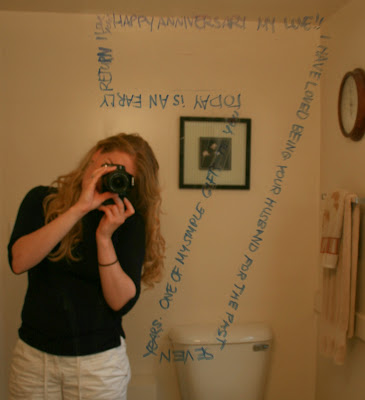 HAPPY ANNIVERSARY MY LOVE!!
I HAVE LOVED BEING YOUR HUSBAND FOR THE PAST
SEVEN
YEARS. ONE OF MY SIMPLE
TODAY IS AN EARLY
RETURN